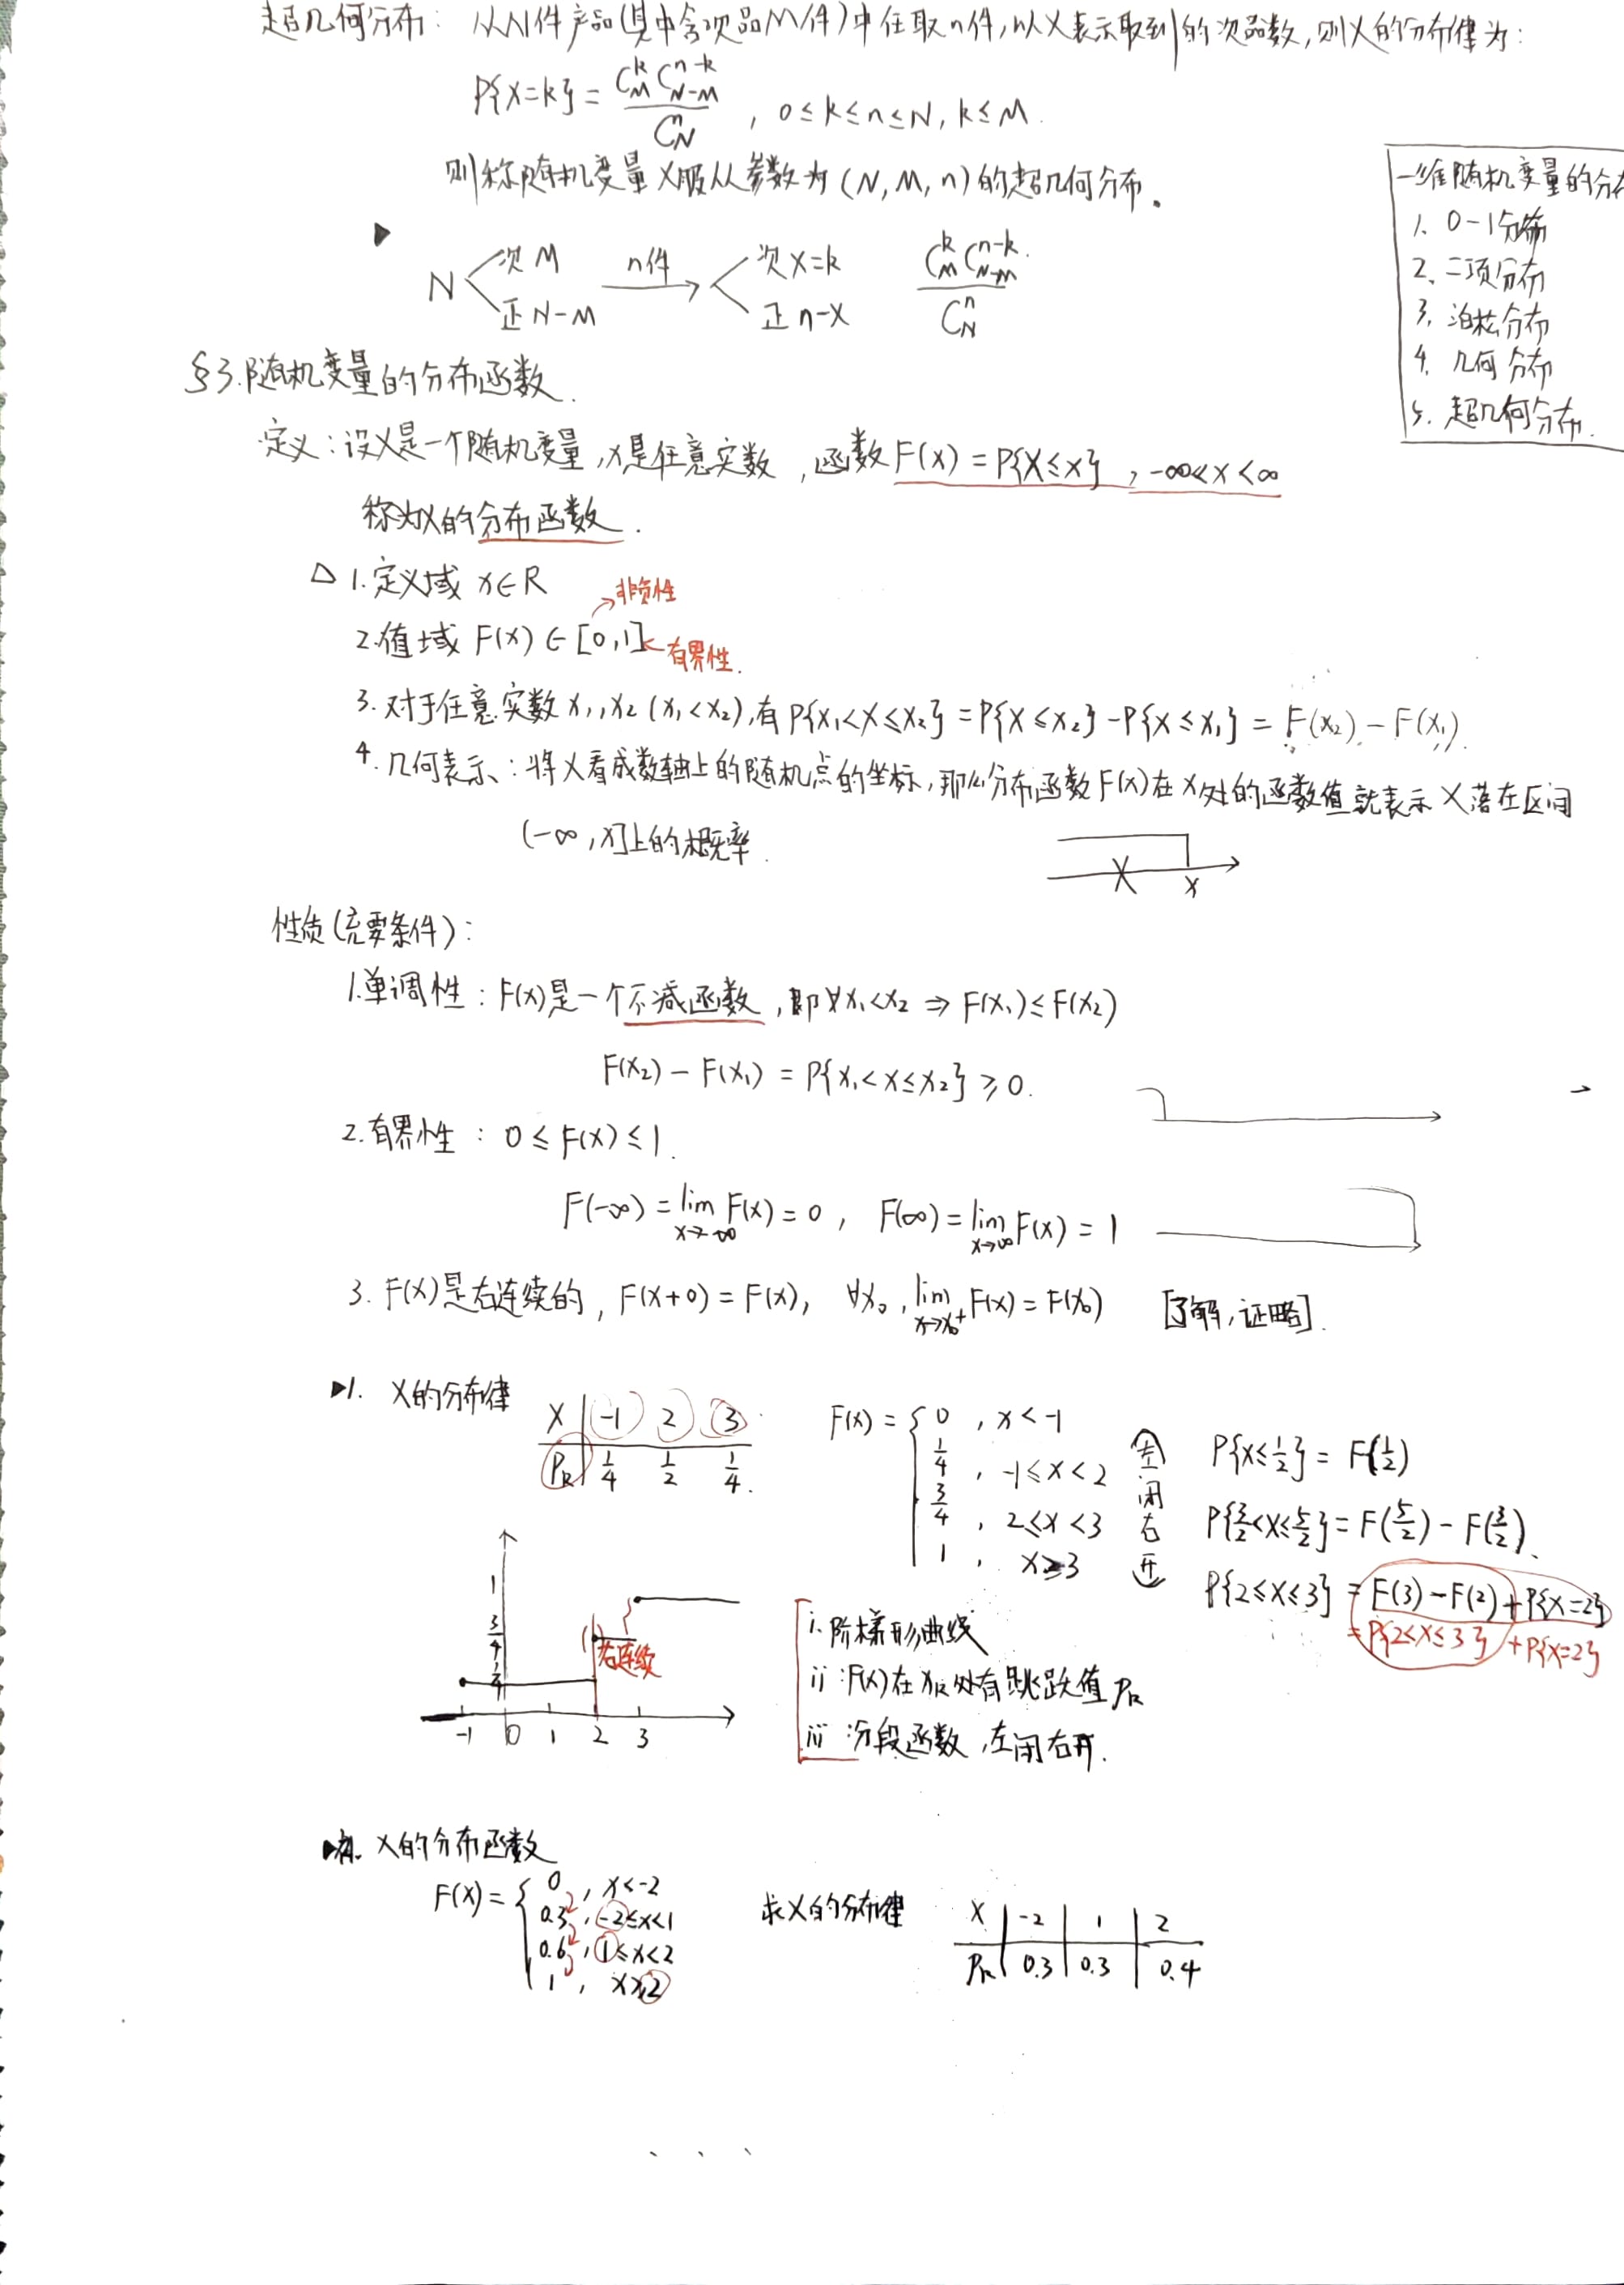 超几何分布: 从N件产品(其中含次品M件)中任取n件,以X表示取到的次品数,则X的分布律为:
P{X=k} = C_M^k C_{N-M}^{n-k} / C_N^n , 0≤k≤n≤N, k≤M.
则称随机变量X服从参数为(N, M, n)的超几何分布。
一维随机变量的分布
1. 0-1分布
2. 二项分布
3. 泊松分布
4. 几何分布
5. 超几何分布.
N 次M 正N-M n件 → 次X=k 正n-X C_M^k C_{N-M}^{n-k} / C_N^n
§3.随机变量的分布函数.
定义:设X是一个随机变量,x是任意实数,函数F(x)=P{X≤x},-∞<x<∞
称为X的分布函数.
△ 1.定义域 x∈R
→非负性
2.值域 F(x)∈[0,1] ←有界性.
3.对于任意实数x₁,x₂(x₁<x₂),有P{x₁<X≤x₂}=P{X≤x₂}-P{X≤x₁}=F(x₂)-F(x₁).
4.几何表示:将X看成数轴上的随机点的坐标,那么分布函数F(x)在x处的函数值就表示X落在区间
(-∞,x]上的概率.
X x
性质(充要条件):
1.单调性:F(x)是一个不减函数,即∀x₁<x₂⇒F(x₁)≤F(x₂)
F(x₂)-F(x₁)=P{x₁<X≤x₂}≥0.
2.有界性:0≤F(x)≤1.
F(-∞)=lim_{x→-∞}F(x)=0, F(∞)=lim_{x→∞}F(x)=1
3. F(x)是右连续的,F(x+0)=F(x), ∀x₀,lim_{x→x₀⁺}F(x)=F(x₀) [了解,证略].
▶1. X的分布律
X | -1 2 3
P_k | 1/4 1/2 1/4.
F(x)= { 0 , x<-1
1/4 , -1≤x<2
3/4 , 2≤x<3
1 , x≥3
(左闭右开)
P{X≤1/2}=F(1/2)
P{3/2<X≤5/2}=F(5/2)-F(3/2).
P{2≤X≤3}=F(3)-F(2)+P{X=2}
=P{2<X≤3}+P{X=2}
1
3/4
1/4
右连续
-1 0 1 2 3
i.阶梯形曲线
ii F(x)在x_k处有跳跃值P_k
iii 分段函数,左闭右开.
X的分布函数
F(x)= { 0 , x<-2
0.3 , -2≤x<1
0.6 , 1≤x<2
1 , x≥2
求X的分布律
X | -2 | 1 | 2
P_k | 0.3 | 0.3 | 0.4